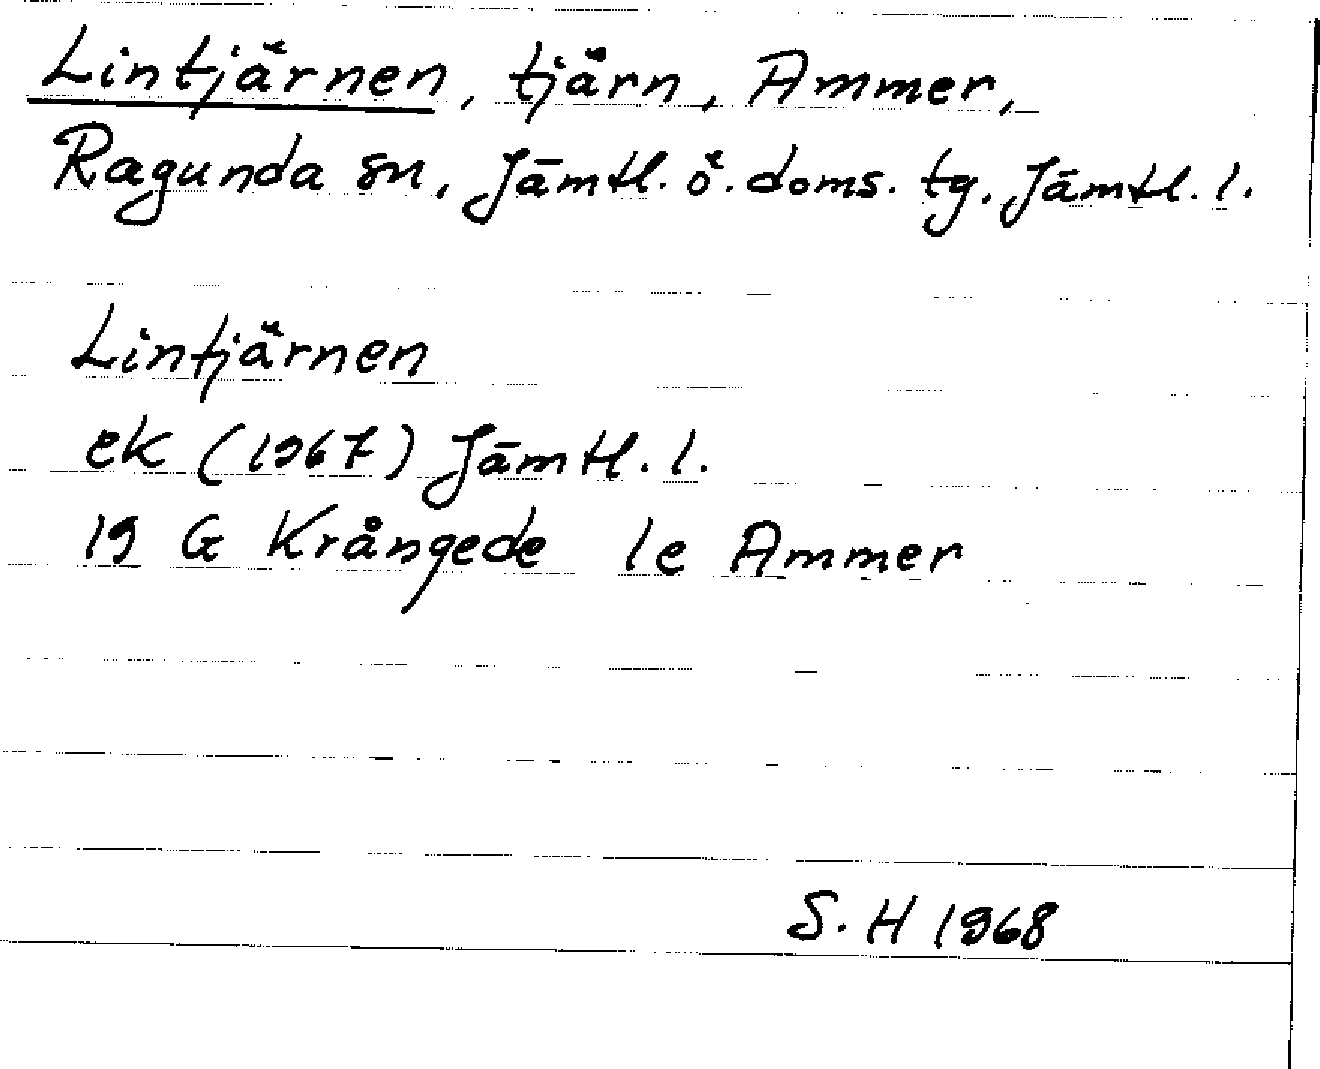 Lintjärnen, tjärn, Ammer,
Ragunda sn, Jämtl. ö. doms. tg. Jämtl. l.
Lintjärnen
ek (1967) Jämtl. l.
19 G Krångede le Ammer
S. H 1968